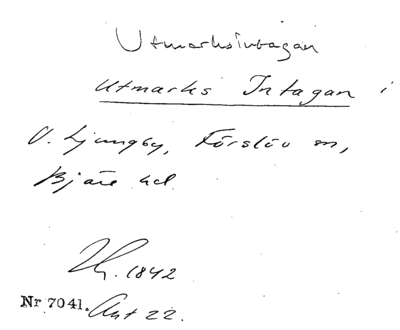 Utmarksintagan
Utmarks Intagan i
V. Ljungby, Förslöv sn,
Bjäre hd.
1842
Nr 7041. Akt 22.